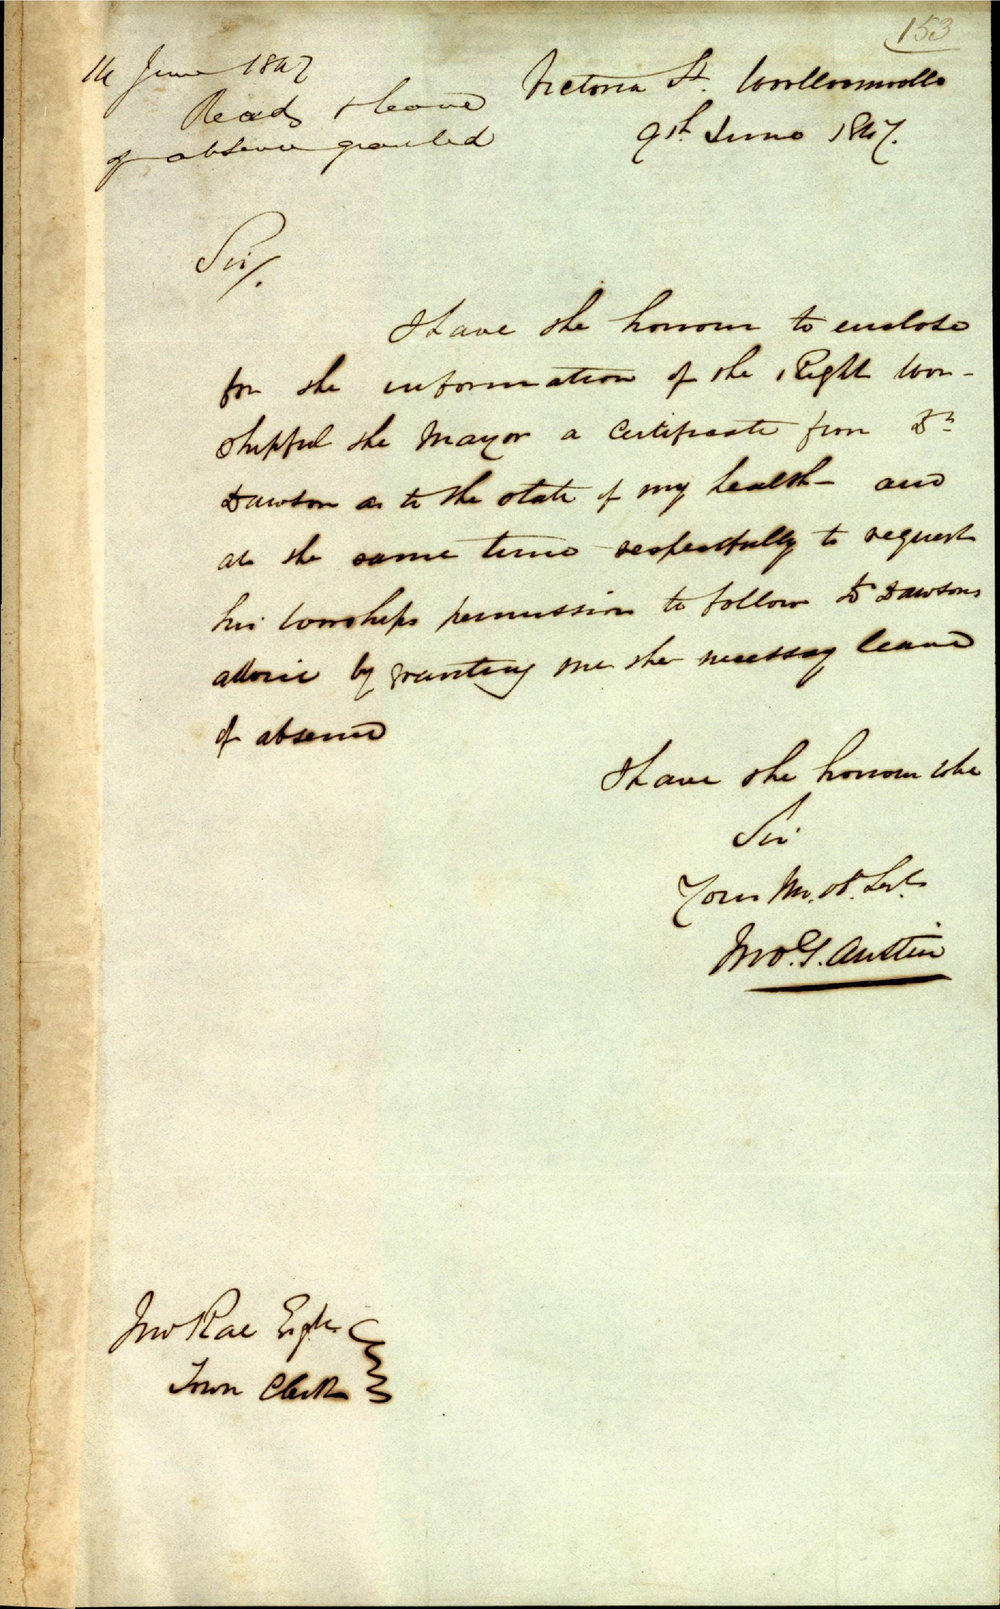 153
14 June 1847
Read & leave
of absence granted
Victoria St. Woolloomoollo
9th June 1847.
Sir/.
I have the honour to enclose
for the information of the Right Wor-
shipful the Mayor a Certificate from Dr
Dawson as to the state of my health - and
at the same time respectfully to request
his Worships permission to follow Dr Dawsons
advice by granting me the necessay leave
of absence
I have the honour to be
Sir
Your Mo. Ob. Sert.
Jno. G. Austin
Jno Rae Esqre
Town Clerk